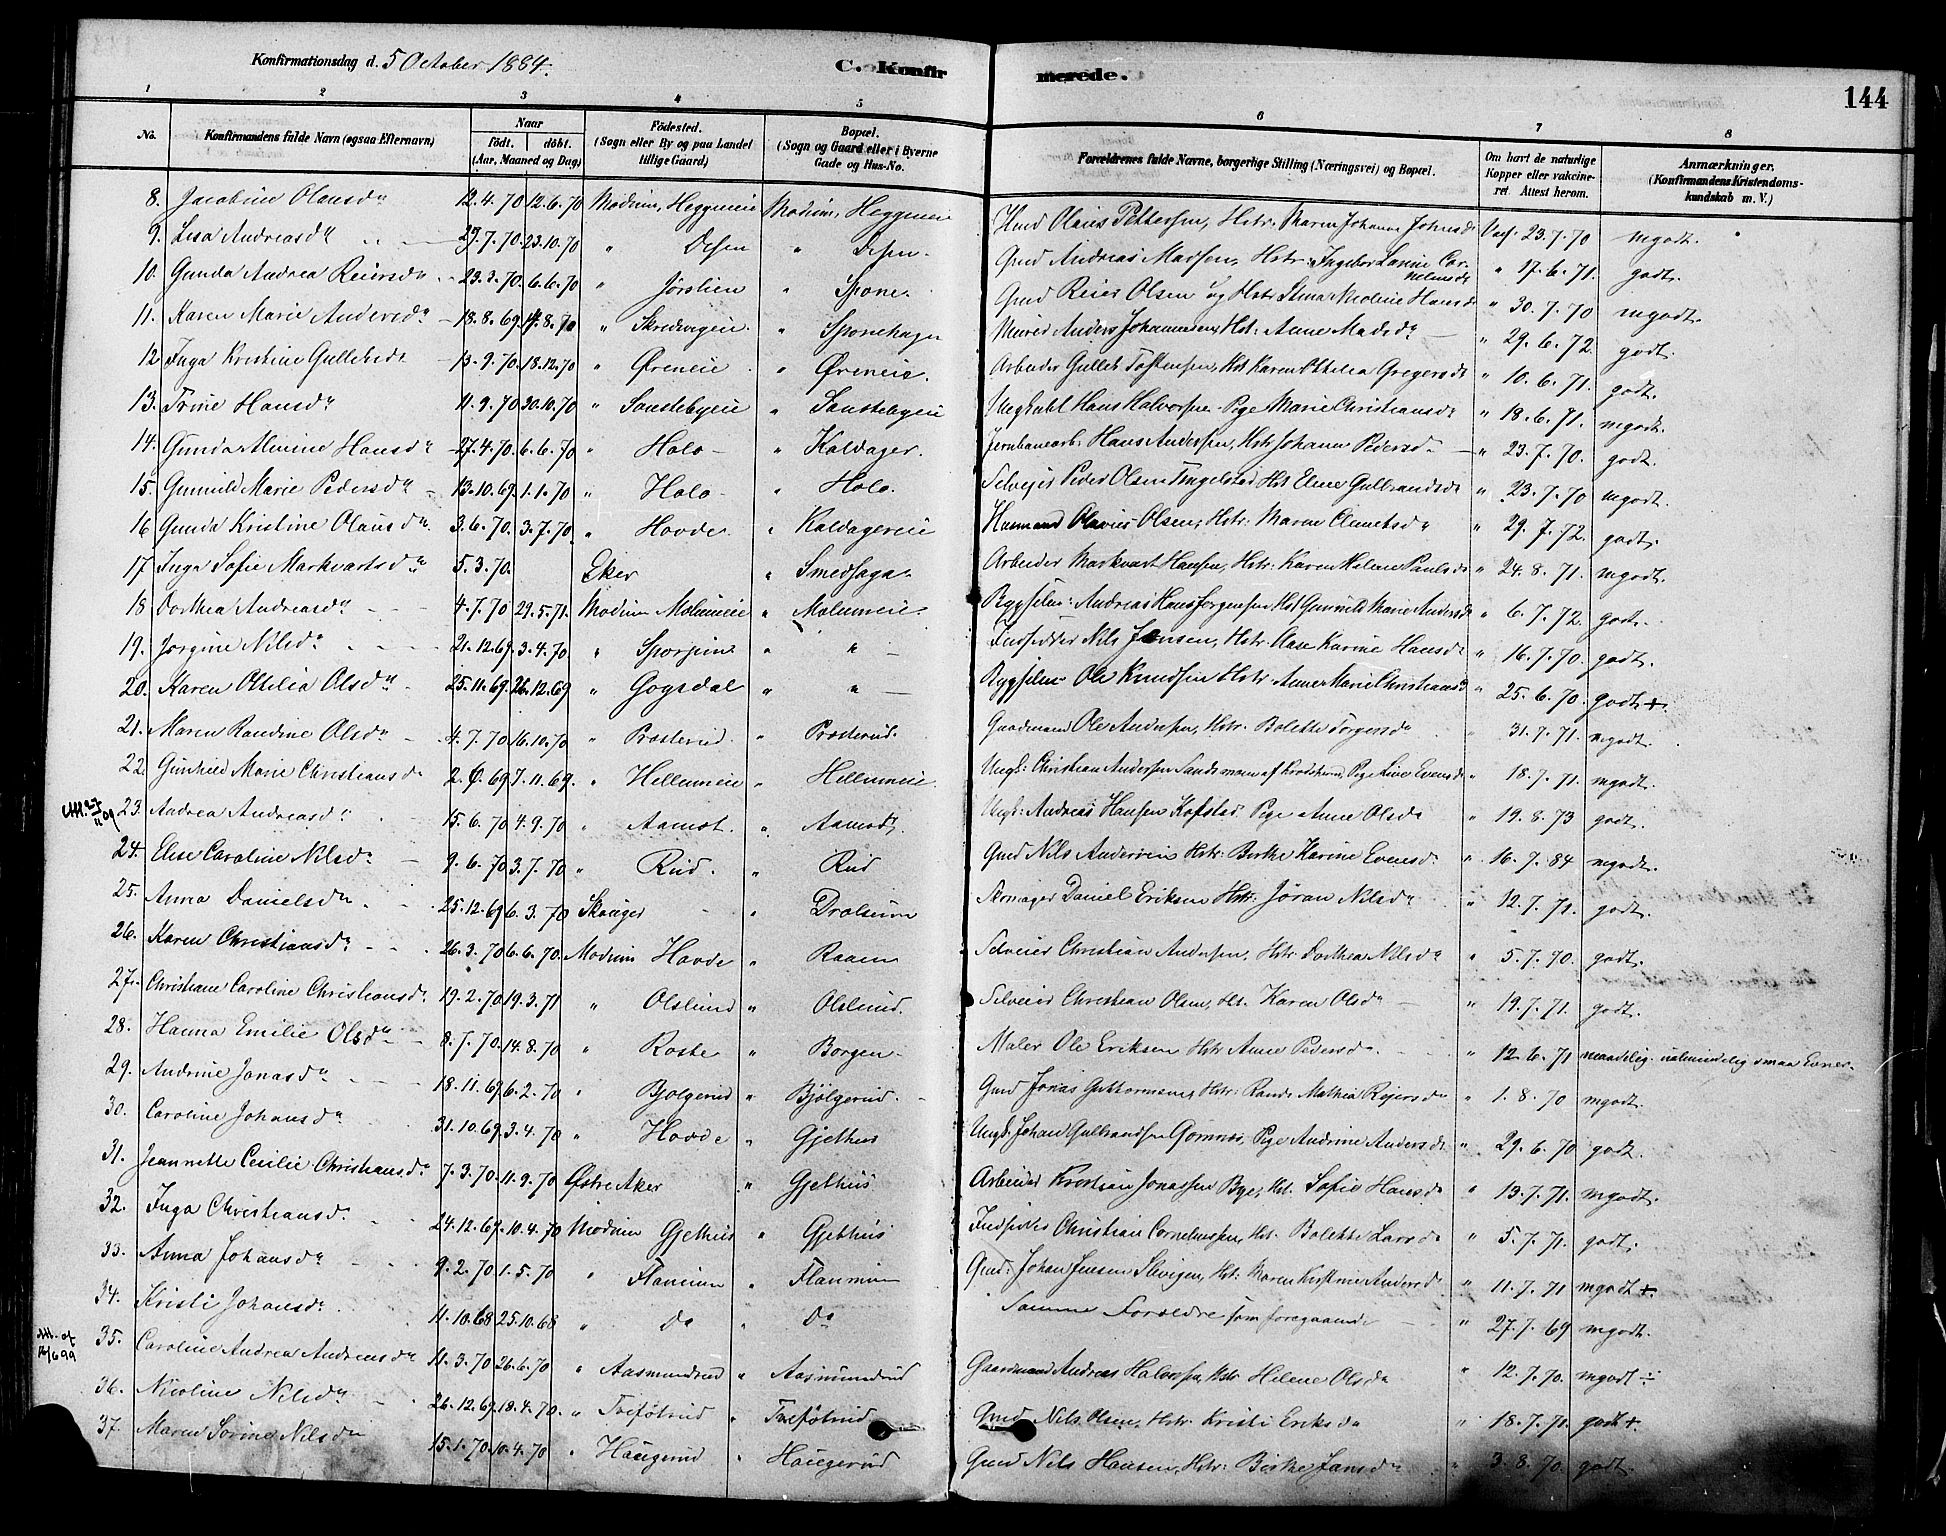 Konfirmationsdag d. 5 October 1884.
C. Konfirmerede.
144
1 2 3 4 5 6 7 8
No. Konfirmandens fulde Navn (ogsaa Efternavn) Naar født. døbt. (Aar, Maaned og Dag) Fødested. (Sogn eller By og paa Landet tillige Gaard) Bopæl. (Sogn og Gaard eller i Byerne Gade og Hus-No. Forældrenes fulde Navne, borgerlige Stilling (Næringsvei) og Bopæl. Om havt de naturlige Kopper eller vakcineret. Attest herom. Anmærkninger. (Konfirmandens Kristendomskundskab m. V.)
8. Jacobine Olausdr 12.4.70 12.6.70 Modum, Heggeneie Modum, Heggeneie Hmd Olaus Pettersen, Hstr. Maren Johanne Johnsd Vacc. 23.7.70 mgodt.
9. Lisa Andreasdr 29.7.70 23.10.70 " Desen " Desen. Gmd Andreas Madsen, Hstr. Ingebor Lovise Corneliusd " 17.6.71. godt.
10. Gunda Andrea Reiersdr 23.3.70. 6.6.70 " Jørslien " Spone. Gmd Reier Olsen og Hstr Stina Nicoline Hansd " 30.7.70 mgodt.
11. Karen Marie Andersdr 18.8.69. 14.8.70 " Skredsvigeie " Sponehagen Murer Anders Johannesen, Hstr. Anne Madsdr " 29.6.72. godt.
12. Inga Kristine Gulliksd 13.9.70. 18.12.70 " Øreneie " Øreneie. Arbeider Gullik Tostensen, Hst Karen Othilia Gregersd " 10.6.71. godt.
13. Trine Hansdr 11.9.70 30.10.70 " Sønstebyeie " Sønstebyeie Ungkarl Hans Halvorsen Pige Marie Christiansd " 18.6.71. mgodt.
14. Gunda Minine Hansdr 27.4.70 6.6.70 " Holo " Kaldager. Jernbanearb. Hans Andersen, Hstr Johanne Pedersd " 23.7.70. godt.
15. Gunnild Marie Pedersdr 13.10.69. 1.1.70 " Holo " Holo. Selveier Peder Olsen Tingelstad, Hst Eline Gulbrandsd " 23.7.70 mgodt.
16 Gunda Kristine Olausdr 3.6.70. 3.7.70. " Hovde " Kaldagereie Husmand Olavus Olsen, Hstr. Maren Clemetsdr " 29.7.72. godt.
17. Inga Sofie Markvartsdr 5.3.70. Eker " Smedsaga. Arbeider Markvart Hansen, Hstr. Karen Helene Paulsd " 24.8.71. mgodt.
18 Dorthea Andreasdr 4.7.70 29.5.71. Modum Melumeie " Melumeie Bygselm: Andreas Hans Jørgensen Hst Gunnild Marie Andersd " 6.7.72. godt.
19. Jørgine Nilsdr 21.12.69. 3.4.70. " " " — Indsidder Nils Jensen, Hstr. Aase Karine Hansd " 16.7.70. godt.
20. Karen Othilia Olsdr 25.11.69. 26.12.69 " Gogsdal " " — Bygselm Ole Knudsen Hstr Anne Marie Christiansd " 25.6.70. godt +.
21. Maren Randine Olsdr 4.7.70 16.10.70 " Præsterud. " Præsterud. Gaardmand Ole Andersen, Hstr. Bolette Torgersdr " 31.7.71. mgodt.
22. Gunhild Marie Christiansd 2.6.69 7.11.69. " Hellumeie " Hellumeie. Ungk: Christian Andersen Sandsmoen af Krødsherred, Pige Line Evensd " 18.7.71. mgodt.
23. Andrea Andreasdr 15.6.70 4.9.70 " Aamot. " Aamodt. Ungk: Andreas Hansen Kofstad, Pige Anne Olsd " 19.8.73 godt.
24. Elise Caroline Nilsdr 9.6.70 3.7.70 " Rud. " Rud Gmd Nils Andersen Hstr. Berthe Karine Evensd " 16.7.84 mgodt.
25. Anna Danielsdr 25.12.69 6.3.70 Skauger " Drolsum Skomager Daniel Eriksen Hstr. Jøran Nilsdr " 12.7.71. godt.
26. Karen Christiansdr 26.3.70 6.6.70. Modum Hovde " Raaen Selveier Christian Andersen, Hstr. Dorthea Nilsdr " 5.7.70. godt.
27. Christiane Caroline Christiansdr 19.2.70 19.3.71 " Olslund " Olslund. Selveier Christian Olsen, Hst. Karen Olsdr " 19.7.71. godt.
28. Hanna Emilie Olsdr 8.7.70. 14.8.70 " Roste " Borgen. Maler Ole Eriksen Hstr Anne Pedersdr " 12.6.71 maadelig. ualmindelig smaa Evner.
29. Andrine Jonasdr 18.11.69. 6.2.70 " Bjølgerud " Bjølgerud. Gmd Jonas Guttormsen, Hstr. Randi Mathea Reiersdr " 1.8.70 mgodt.
30. Caroline Johansdr 31.10.69. 3.4.70 " Hovde " Gjethus Ungk. Johan Gulbrandsen Gomnæs, Pige Andrine Andersd " 29.6.70 godt.
31. Jeannette Cecilie Christiansdr 7.3.70. 11.9.70 Østre Aker " Gjethus Arbeider Kristian Jonassen Bye, Hst. Sofie Hansd " 13.7.71. mgodt.
32. Inga Christiansdr 24.12.69. 10.4.70 Modum Gjethus " Gjethus Indsidder Christian Corneliussen, Hst. Bolette Larsd " 5.7.71. godt.
33. Anna Johansdr 9.2.70 1.5.70 " Flannum " Flannum Gmd: Johan Jensen Slevigen, Hst: Maren Kirstine Andersd " 11.7.71 mgodt +.
34. Kristi Johansdr 11.10.68 25.10.68 " do " do Samme Forældre som foregaaende " 27.7.69 mgodt.
35. Caroline Andrea Andreasdr 11.3.70 26.6.70 " Aasmundrud " Aasmundrud Gaardmand Andreas Halvorsen, Hstr Helene Olsdr " 12.7.70. mgodt ÷
36. Nicoline Nilsdr 26.12.69. 18.4.70. " Trefótrud " Trefótrud Gmd Nils Olsen, Hstr. Kristi Eriksdr " 18.7.71. godt +.
37. Maren Sorine Nilsdr 15.1.70 10.4.70 " Haugerud " Haugerud Gmd Nils Hansen, Hstr. Birthe Jansdr " 3.8.70. godt.